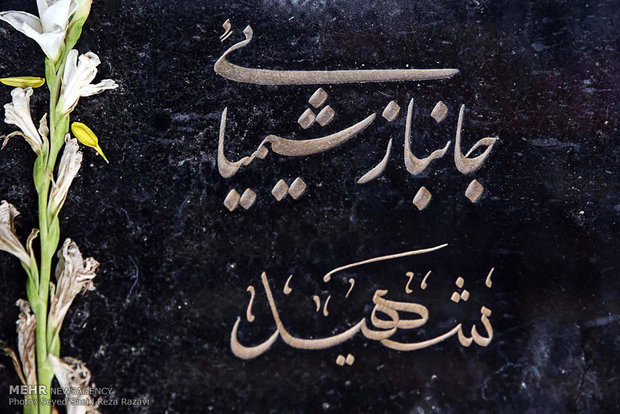 جانباز شیمیائی
شهید
MEHR NEWSAGENCY
Photo: Seyed Saeid Reza Razavi